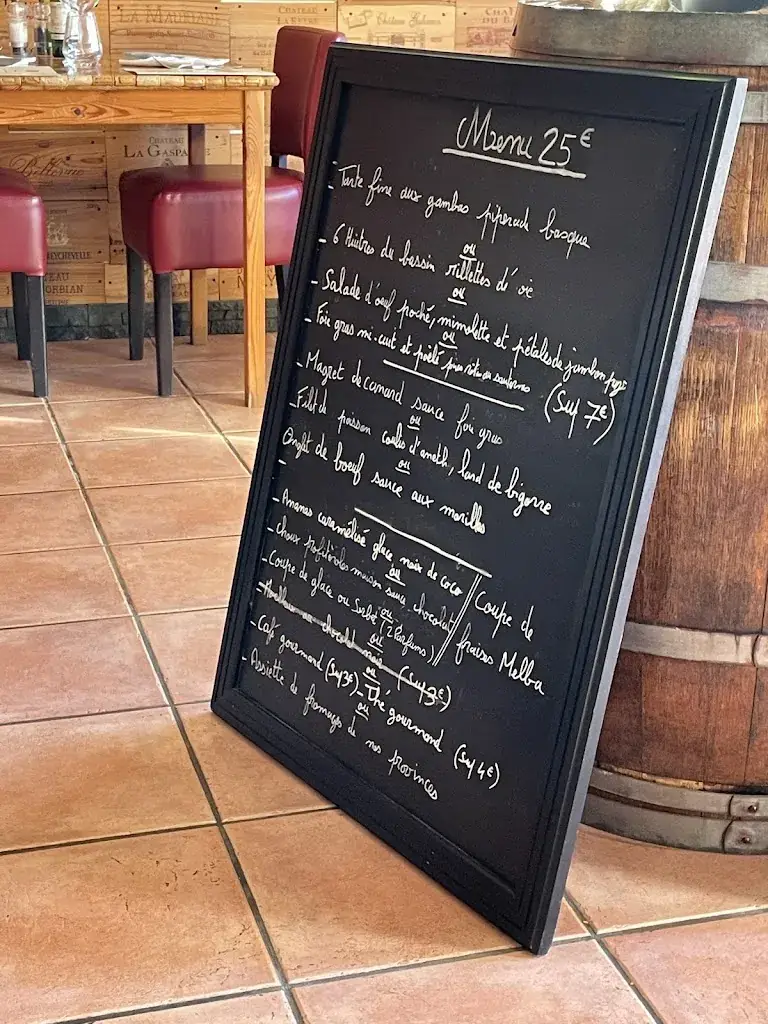 LA MAURIANE
CHATEAU
CHATEAU
LA GASPA
Bellevue
Menu 25€
- Tarte fine aux gambas piperade basque
ou
- 6 Huitres du bassin rillettes d'oie
ou
- Salade d'oeuf poché, mimolette et pétales de jambon pays
ou
- Foie gras mi-cuit et poêlé (Sup 7€)
- Magret de canard sauce foie gras
ou
- Filet de poisson coulis d'aneth, lard de bigorre
ou
- Onglet de boeuf sauce aux morilles
- Ananas caramélisé glace noix de coco
ou
- choux profitéroles maison sauce chocolat
- Coupe de glace ou Sorbet (2 Parfums)
ou
Coupe de
fraises Melba
- Moelleux au chocolat noir (Sup 3€)
ou
- Café gourmand (Sup 3€) - Thé gourmand (Sup 4€)
ou
- Assiette de fromages de nos provinces